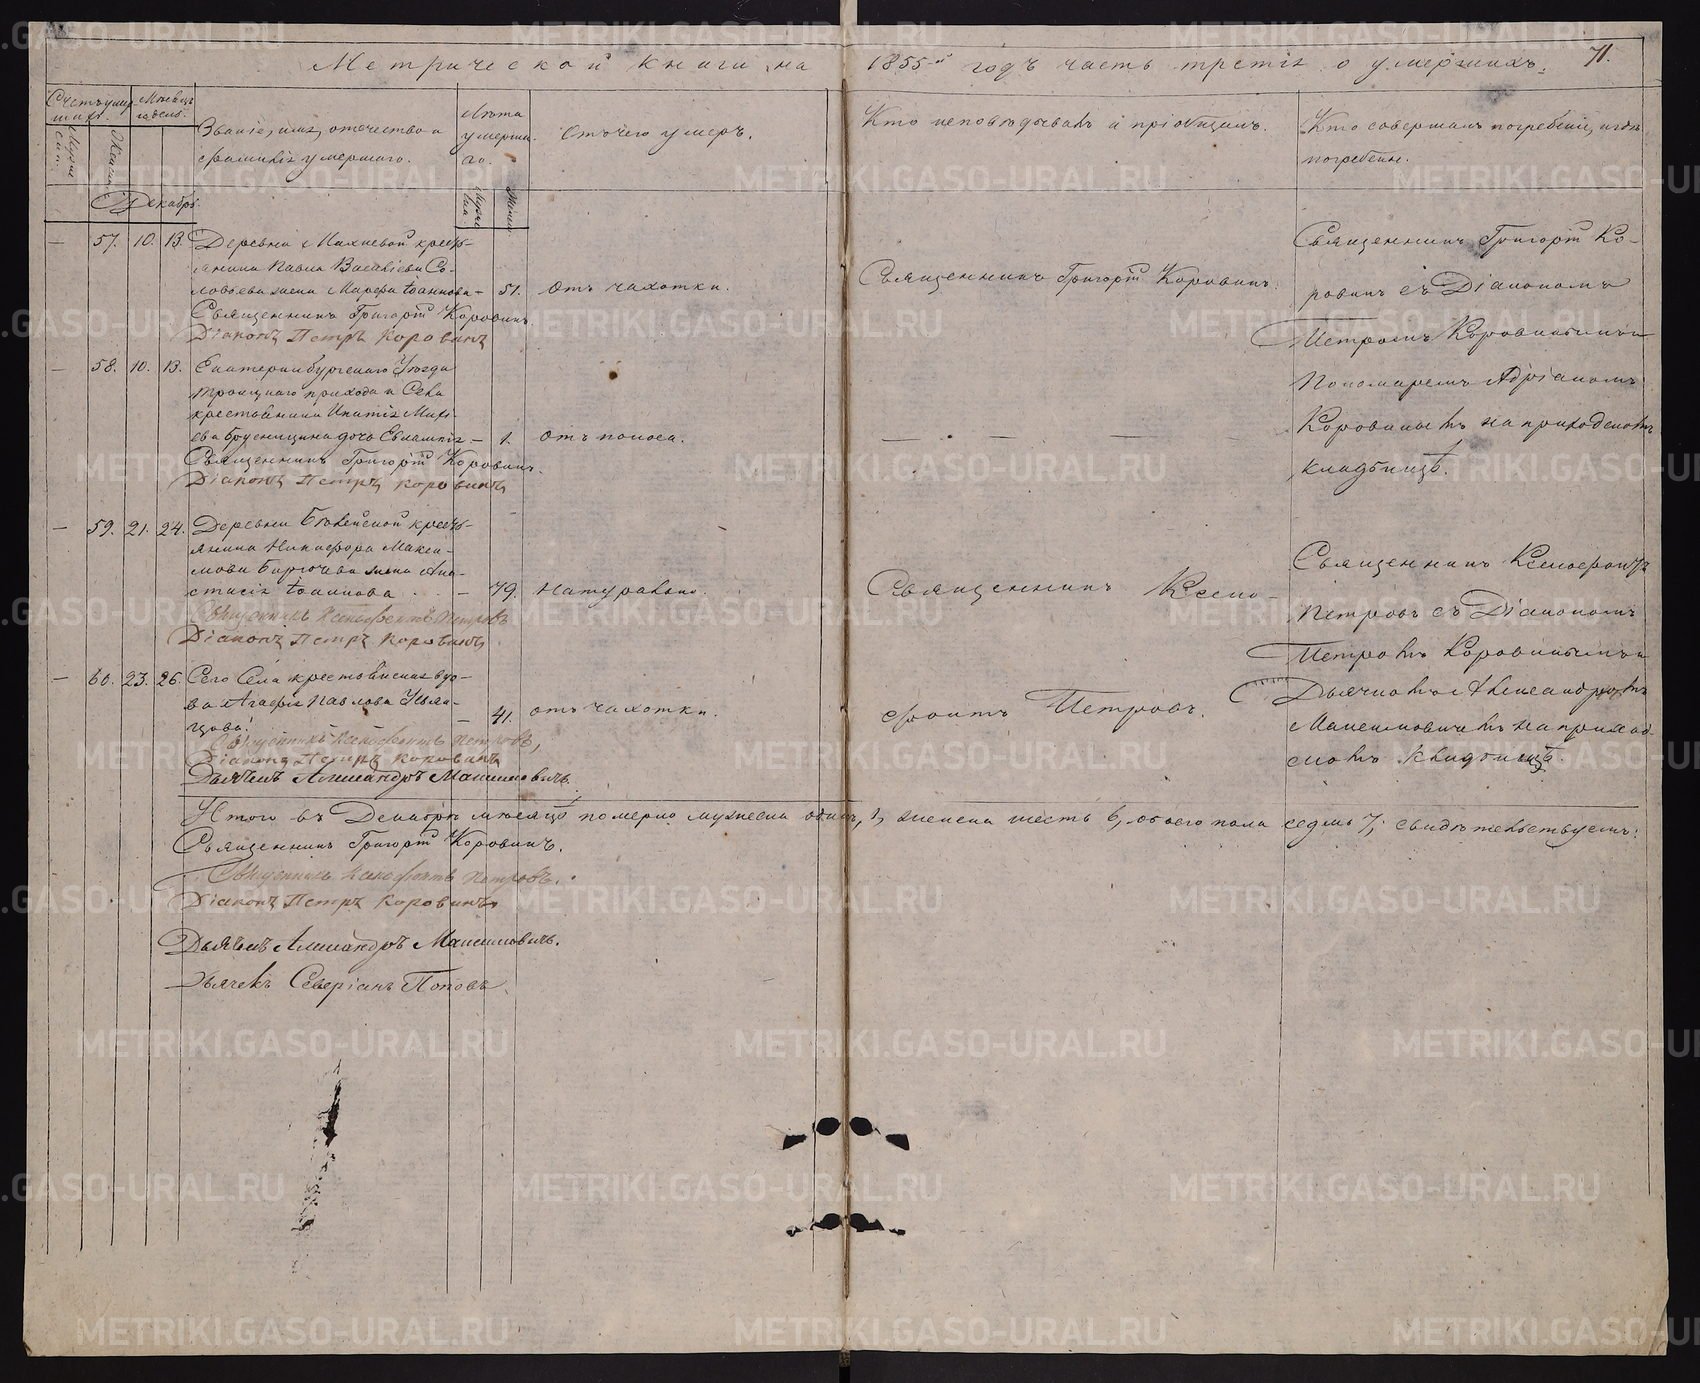 Метрической книги на 1855-й годъ часть третія о умершихъ.
71.
Счетъ умер-
шихъ.
Мужес
Женск.
Мѣсяцъ
и день.
Званіе, имя, отечество и
фамилія умершаго.
Лѣта
умерша-
го.
Мужес
Женск
Отъ чего умеръ.
Кто исповѣдывалъ и пріобщалъ.
Кто совершалъ погребеніе, и гдѣ
погребены.
Декабрь
— 57. 10. 13. Деревни Махневой кресть-
янина Павла Васильева Со-
ловьева жена Марфа Іоаннова — 51. отъ чахотки.
Священникъ Григорій Коровинъ.
Діаконъ Петръ Коровинъ
Священникъ Григорій Коровинъ.
Священникъ Григорій Ко-
ровинъ съ Діакономъ
Петромъ Коровинымъ и
Пономаремъ Адріаномъ
Коровинымъ на приходскомъ
кладбищѣ.
— 58. 10. 13. Екатеринбургскаго Уѣзда
Троицкаго прихода и Села
крестьянина Ипатія Михе-
ева Брусницина дочь Евлампія — 1. отъ поноса.
Священникъ Григорій Коровинъ.
Діаконъ Петръ Коровинъ
— — —
— 59. 21. 24. Деревни крестъ-
янина Никифора Макси-
мова жена Ана-
стасія Іоаннова — 79. натурально.
Священникъ Ксенофонтъ Петровъ
Діаконъ Петръ Коровинъ
Священникъ Ксено-
фонтъ Петровъ.
Священникъ Ксенофонтъ
Петровъ съ Діакономъ
Петромъ Коровинымъ и
Дьячкомъ Александромъ
Максимовичемъ на приход-
скомъ кладбищѣ.
— 60. 23. 26. Сего Села крестьянская вдо-
ва Агафія Павлова Ульян-
цова. — 41. отъ чахотки.
Священникъ Ксенофонтъ Петровъ,
Діаконъ Петръ Коровинъ
Дьячекъ Александръ Максимовичъ.
Итого въ Декабрѣ мѣсяцѣ померло мужеска одинъ, 1, женска шесть 6, обоего пола седмь 7; свидѣтельствуемъ:
Священникъ Григорій Коровинъ.
Священникъ Ксенофонтъ Петровъ.
Діаконъ Петръ Коровинъ
Дьячекъ Александръ Максимовичъ.
Дьячекъ Северіанъ Поповъ
METRIKI.GASO-URAL.RU